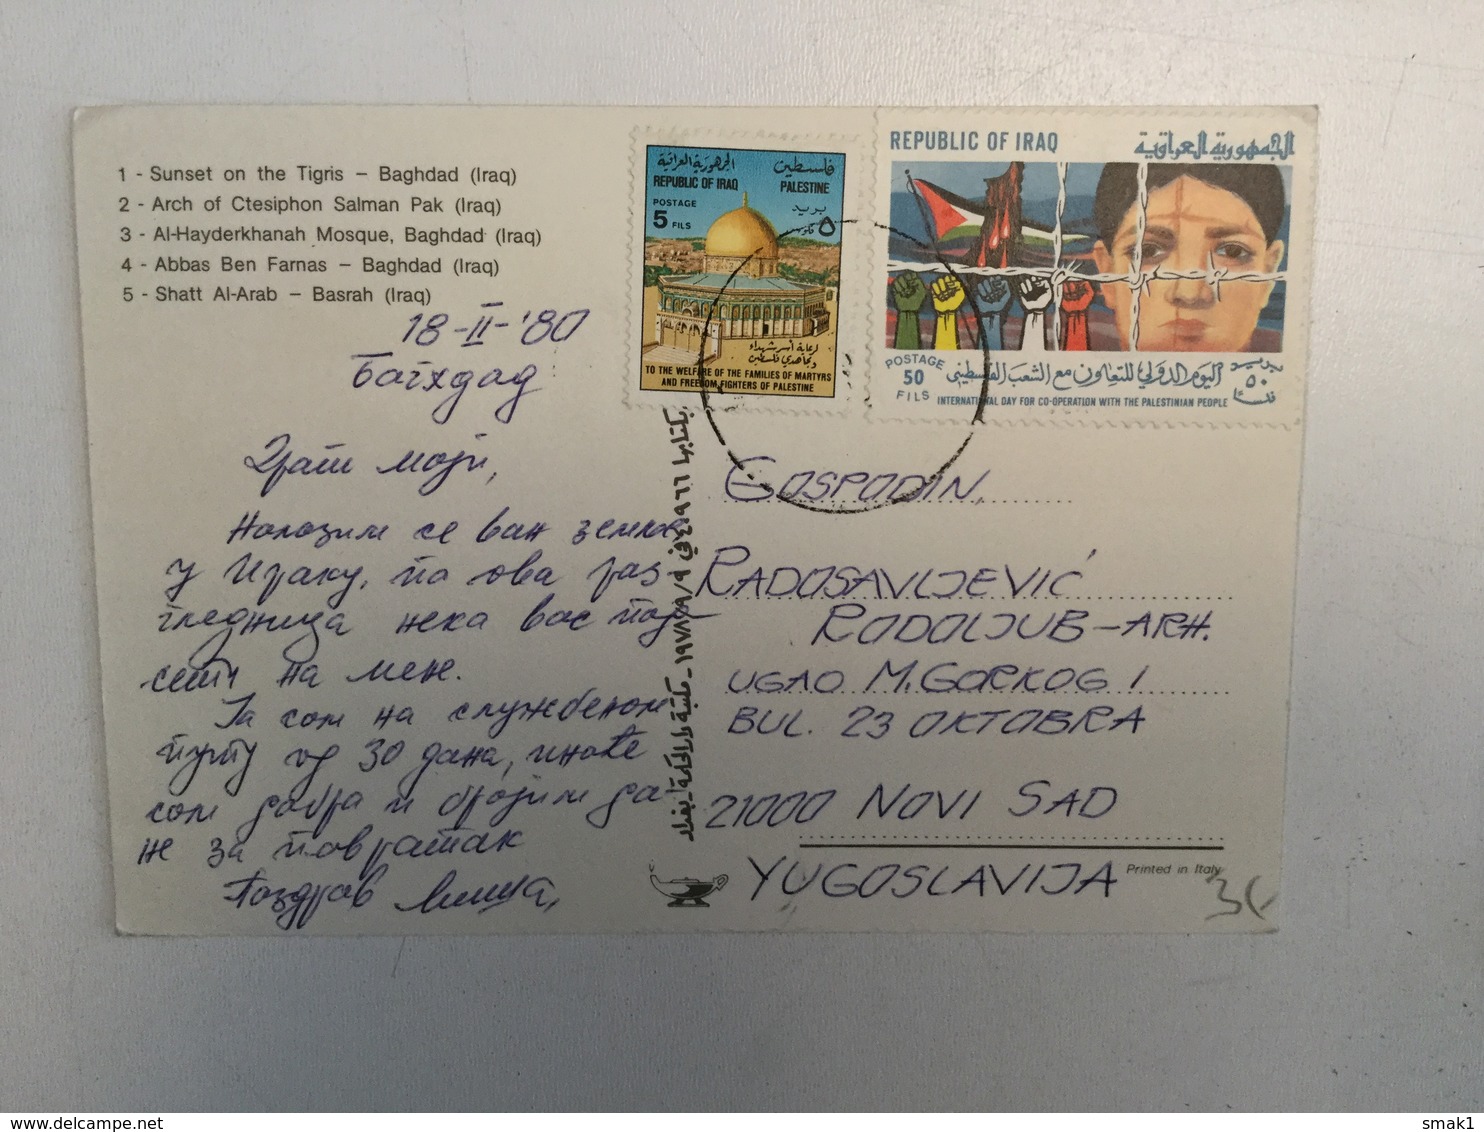 1 - Sunset on the Tigris – Baghdad (Iraq)
2 - Arch of Ctesiphon Salman Pak (Iraq)
3 - Al-Hayderkhanah Mosque, Baghdad (Iraq)
4 - Abbas Ben Farnas – Baghdad (Iraq)
5 - Shatt Al-Arab – Basrah (Iraq)
18-II-'80
Багхдад
Драги моји,
Налазим се ван земље
у Ираку, па ова раз
гледница нека вас под-
сети на мене.
Ја сам на службеном
путу од 30 дана, иначе
сам добра и бројим да
не за повратак
Поздрав
الجمهورية العراقية
فلسطين
REPUBLIC OF IRAQ
PALESTINE
POSTAGE
بريد
5 FILS
٥ فلوس
لرعاية أسر شهداء
ومجاهدي فلسطين
TO THE WELFARE OF THE FAMILIES OF MARTYRS
AND FREEDOM FIGHTERS OF PALESTINE
REPUBLIC OF IRAQ
الجمهورية العراقية
POSTAGE
50
FILS
اليوم الدولي للتعاون مع الشعب الفلسطيني
بريد
٥٠
فلسًا
INTERNATIONAL DAY FOR CO-OPERATION WITH THE PALESTINIAN PEOPLE
GOSPODIN,
RADOSAVLJEVIĆ
RODOLJUB-ARH.
UGAO M. GORKOG 1
BUL. 23 OKTOBRA
21000 NOVI SAD
YUGOSLAVIJA
Printed in Italy
smak1